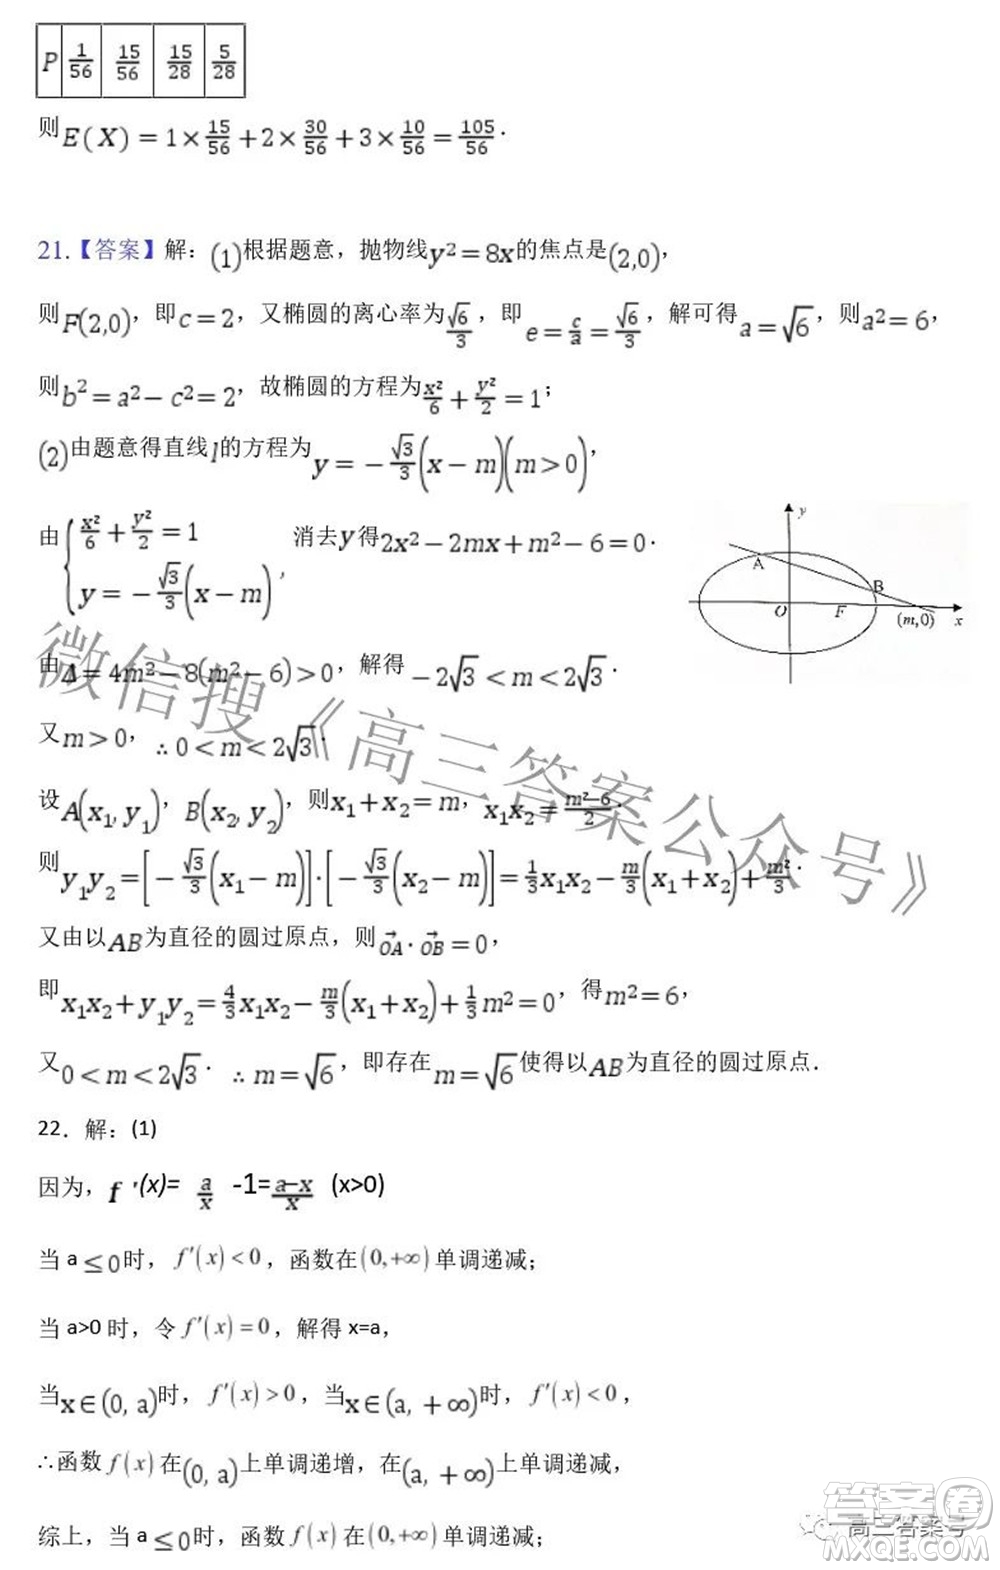 P 1/56 15/56 15/28 5/28
则E(X)=1×15/56+2×30/56+3×10/56=105/56.
21.【答案】解：(1)根据题意，抛物线y²=8x的焦点是(2,0)，
则F(2,0)，即c=2，又椭圆的离心率为√6/3，即e=c/a=√6/3，解可得a=√6，则a²=6，
则b²=a²−c²=2，故椭圆的方程为x²/6+y²/2=1；
(2)由题意得直线l的方程为y=−√3/3(x−m)(m>0)，
由{x²/6+y²/2=1 y=−√3/3(x−m)，消去y得2x²−2mx+m²−6=0.
y A B O F (m,0) x
由Δ=4m²−8(m²−6)>0，解得−2√3<m<2√3.
又m>0，∴0<m<2√3.
设A(x₁,y₁)，B(x₂,y₂)，则x₁+x₂=m，x₁x₂=(m²−6)/2.
则y₁y₂=[−√3/3(x₁−m)]·[−√3/3(x₂−m)]=1/3x₁x₂−m/3(x₁+x₂)+m²/3.
又由以AB为直径的圆过原点，则OA→·OB→=0，
即x₁x₂+y₁y₂=4/3x₁x₂−m/3(x₁+x₂)+1/3m²=0，得m²=6，
又0<m<2√3.∴m=√6，即存在m=√6使得以AB为直径的圆过原点.
22．解：(1)
因为，f '(x)= a/x -1=(a−x)/x (x>0)
当a≤0时，f′(x)<0，函数在(0,+∞)单调递减；
当a>0时，令f′(x)=0，解得x=a，
当x∈(0, a)时，f′(x)>0，当x∈(a, +∞)时，f′(x)<0，
∴函数f(x)在(0, a)上单调递增，在(a, +∞)上单调递减，
综上，当a≤0时，函数f(x)在(0,+∞)单调递减；
微信搜《高三答案公众号》
高三答案号
答案卷
MXQE.COM